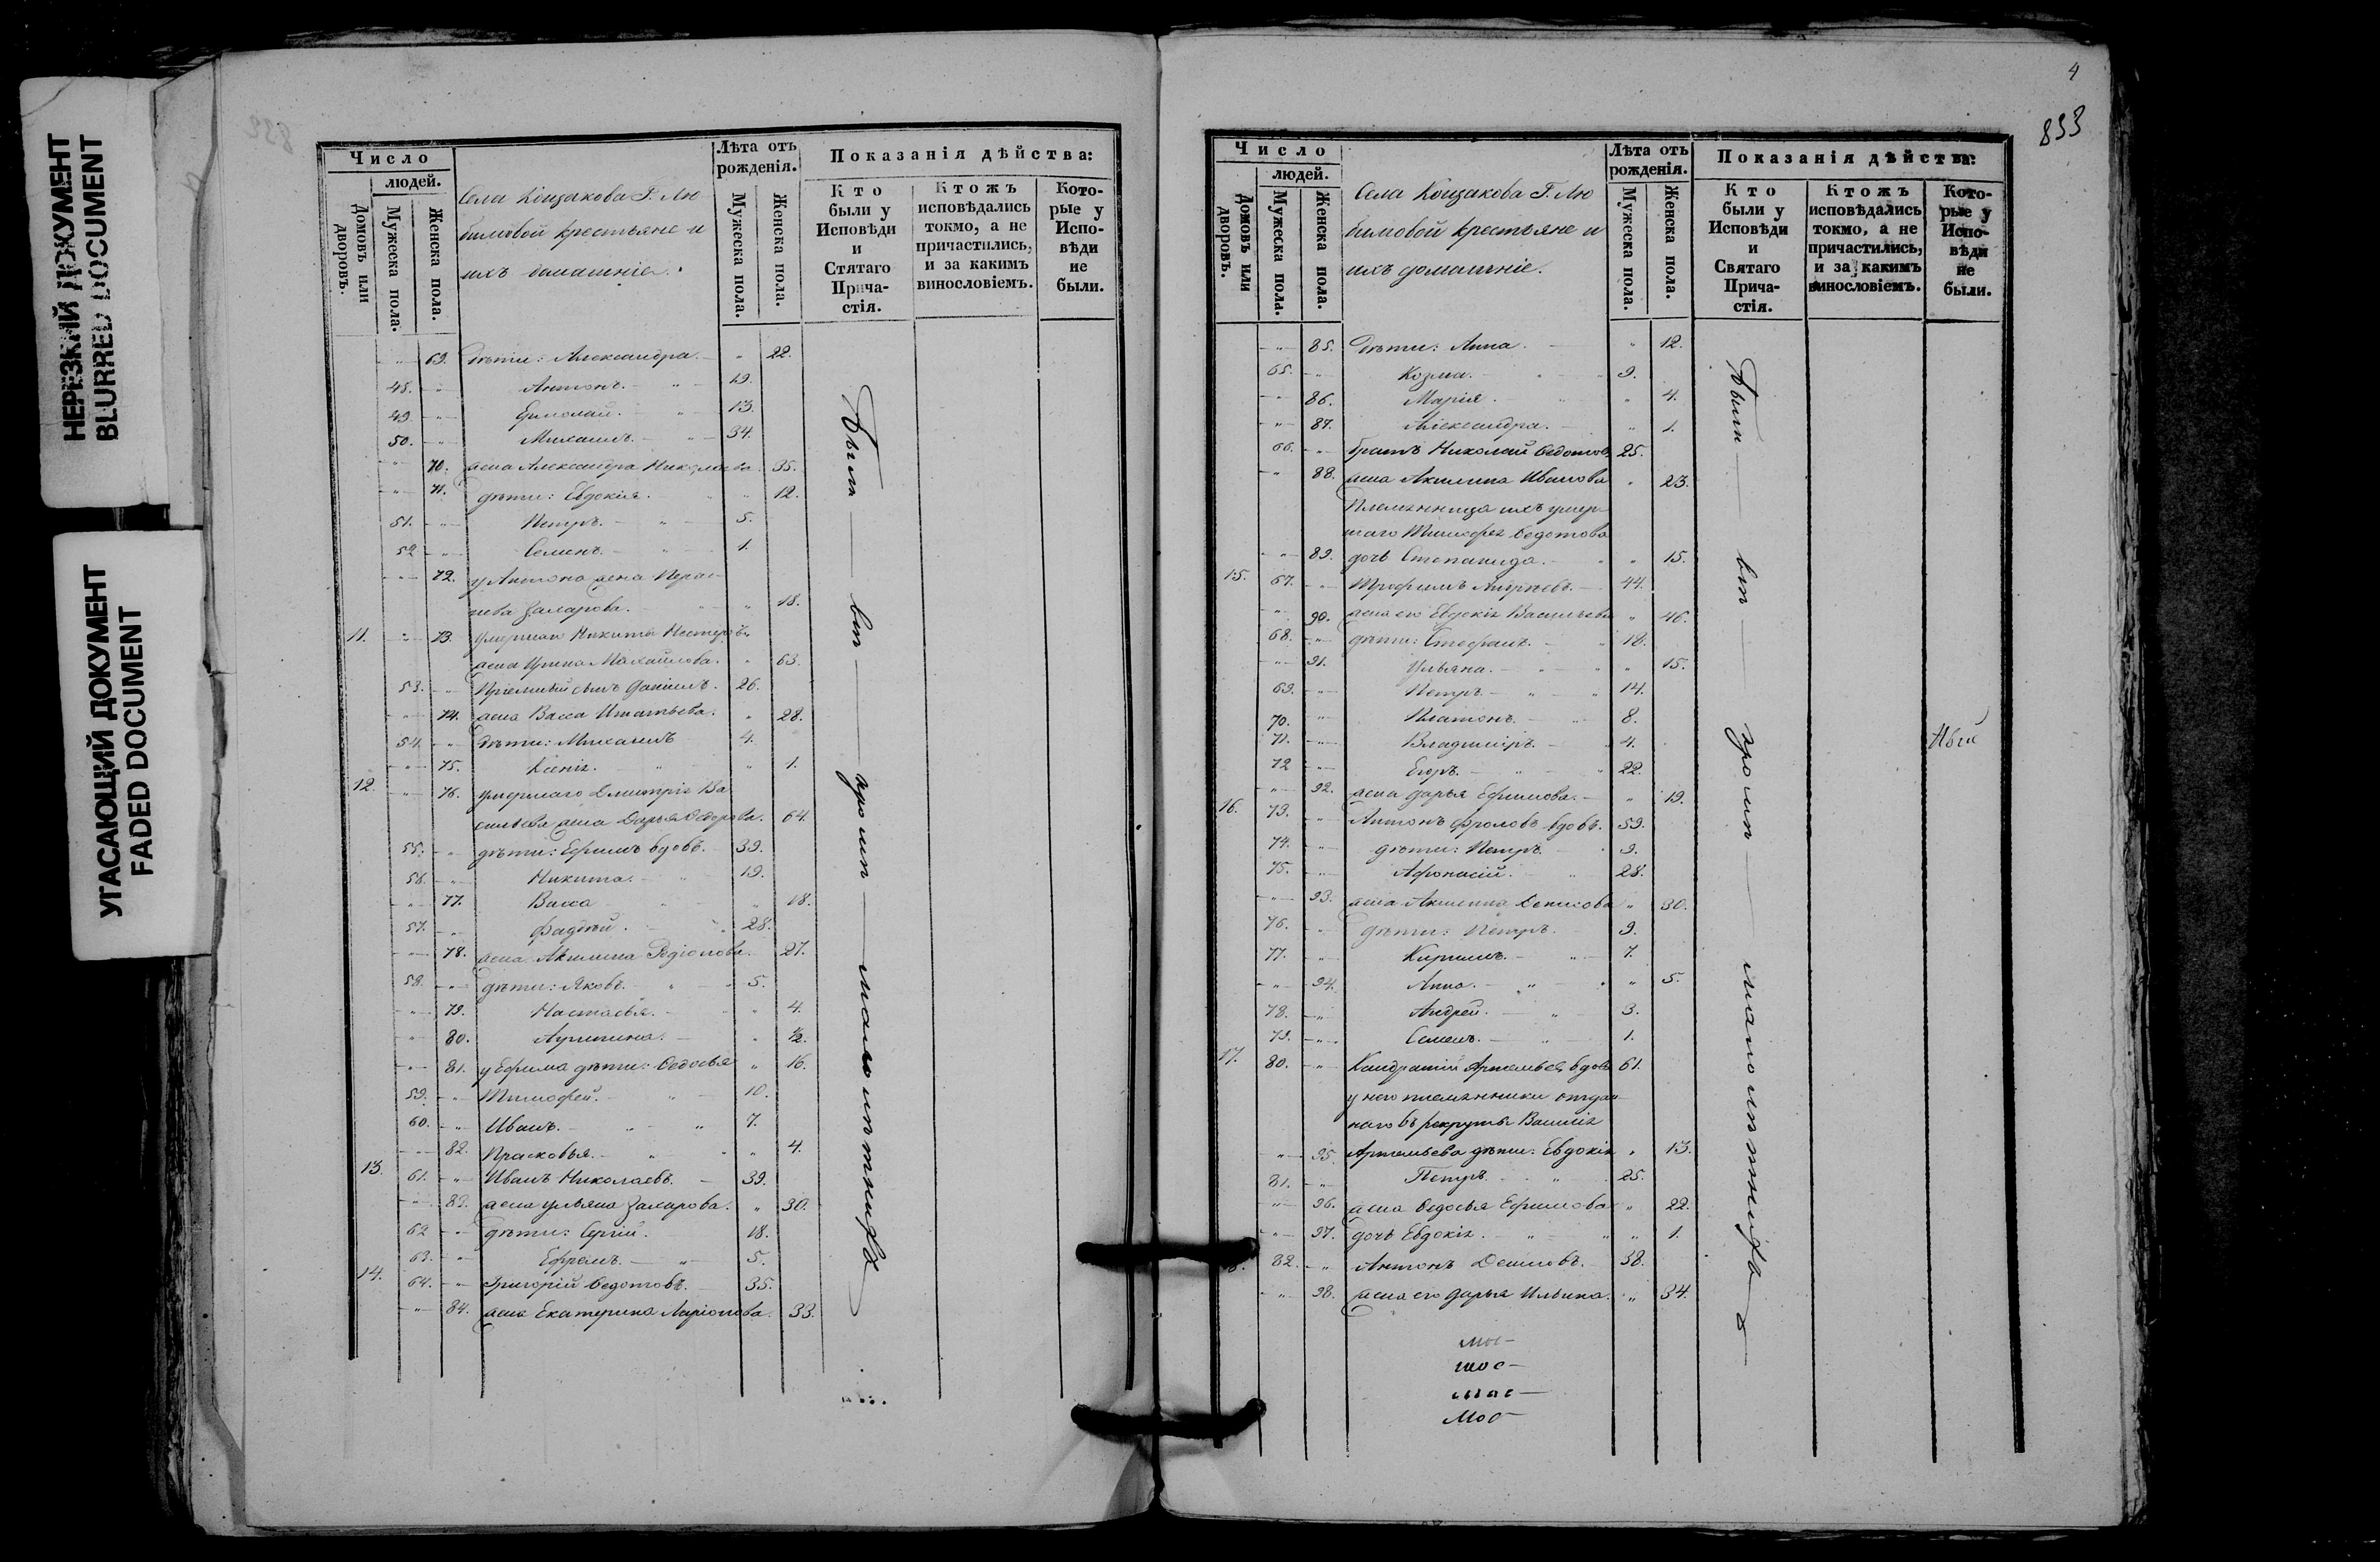 НЕРЕЗКИЙ ДОКУМЕНТ
BLURRED DOCUMENT
УГАСАЮЩИЙ ДОКУМЕНТ
FADED DOCUMENT
Число
людей.
Домовъ или дворовъ.
Мужеска пола.
Женска пола.
Села Кощакова Г. Лю
бимовой крестьяне и
ихъ домашніе.
Лѣта отъ рожденія.
Мужеска пола.
Женска пола.
Показанія дѣйства:
Кто были у Исповѣди и Стятаго Прича-стія.
Ктожъ исповѣдались токмо, а не причастились, и за какимъ винословіемъ.
Кото-рые у Испо-вѣди не были.
69. дѣти: Александра. 22.
48. Антонъ. 19.
49. Ермолай. 13.
50. Михаилъ. 34.
70. жена Александра Николаева. 35.
71. дѣти: Евдокія. 12.
51. Петръ. 5.
52 Семенъ. 1.
72. у Антона жена
Захарова. 18.
11. 73. умершаго Никиты
жена Ирина Михайлова. 63.
53. Пріемный сынъ Даніилъ. 26.
74. жена Васса Игнатьева. 28.
54. дѣти: Михаилъ 4.
75. Ксенія. 1.
12 76. умершаго Дмитрія Ва
сильева жена Дарья Ѳедорова. 64.
55. дѣти: Ефимъ вдовъ. 39.
56. Никита. 19.
77. Васса 18.
57. Фаддѣй. 28.
78. жена Акилина Родіонова. 27.
58. дѣти: Яковъ. 5.
79. Настасья. 4.
80. ½.
81. у Ефима дѣти: Ѳедосья 16.
59. Тимофей. 10.
60. Иванъ. 7.
82. Прасковья. 4.
13. 61. Иванъ Николаевъ. 39.
83. жена Ульяна Захарова. 30.
62 дѣти: Сергій. 18.
63. Ефремъ. 5.
14. 64. Григорій Ѳедотовъ. 35.
84. жена Екатерина Ларіонова. 33.
Были
4
833
Число
людей.
Домовъ или дворовъ.
Мужеска пола.
Женска пола.
Села Кощакова Г. Лю
бимовой крестьяне и
ихъ домашніе.
Лѣта отъ рожденія.
Мужеска пола.
Женска пола.
Показанія дѣйства:
Кто были у Исповѣди и Святаго Прича-стія.
Ктожъ исповѣдались токмо, а не причастились, и за какимъ винословіемъ.
Кото-рые у Испо-вѣди не были.
85. дѣти: Анна. 12.
65. Козма. 9.
86. Марія. 4.
87. Александра. 1.
66. братъ Николай Ѳедотовъ 25.
88. жена Акилина Иванова 23.
Племянница ихъ умер
шаго Тимофея Ѳедотова
89. дочь Степанида. 15.
15. 67. Трофимъ Андреевъ. 44.
90. жена его Евдокія Васильева 46.
68. дѣти: Стефанъ. 18.
91. Ульяна. 15.
69. Петръ. 14.
70. Платонъ. 8.
71. Владиміръ. 4.
72 Егоръ. 22.
92. жена Дарья Ефимова. 19.
16. 73. Антонъ Фроловъ вдовъ. 59.
74. дѣти: Петръ. 9.
75. Афонасій. 28.
93. жена Акилина Денисова 30.
76. дѣти: Петръ. 9.
77. Кирилъ. 7.
94. Анна. 5.
78. Андрей. 3.
79. Семенъ. 1.
17. 80. Кандратій Артемьев вдов 61.
у него племянники отдан
наго въ рекруты Василія
95. Артемьева дѣти: Евдокія 13.
81. Петръ. 25.
96. жена Ѳедосья Ефимова 22.
97. дочь Евдокія. 1.
82. Антонъ 38.
98. жена его Дарья Ильина. 34.
Были